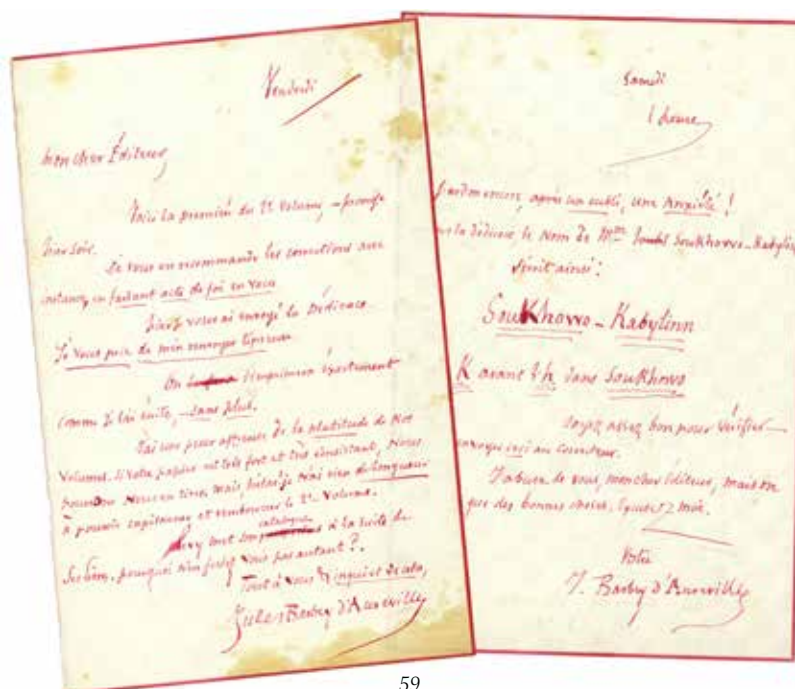 Vendredi
Mon cher Éditeur,
Voici la première du 2e volume, — promise
hier soir.
Je vous en recommande les corrections avec
instance, en faisant acte de foi en vous
Hier, je vous ai envoyé la Dédicace.
Je vous prie de m'en renvoyer l'épreuve
On l'imprimera exactement
comme je l'ai écrite, — sans plus.
J'ai une peur affreuse de la platitude de nos
volumes. Si votre papier est très fort et très consistant, nous
pourrons nous en tirer, mais, hélas! je n'ai rien de longueur
à pouvoir et rembourrer le 2e volume.
tout son catalogue à la suite de
ses livres, pourquoi n'en pas autant?
Tout à vous et inquiet de cela,
Jules Barbey d'Aurevilly
Samedi
1 heure
Pardon encore, après un oubli, une anxiété!
sur la dédicace le nom de Mme Soukhowo-Kabylinn
écrit ainsi:
Soukhowo-Kabylinn
K avant l'h dans Soukhowo
Soyez assez bon pour vérifier —
envoyez ceci au correcteur.
J'abuse de vous, mon cher éditeur, mais
que des bonnes choses. Excusez moi.
Votre
J. Barbey d'Aurevilly
59